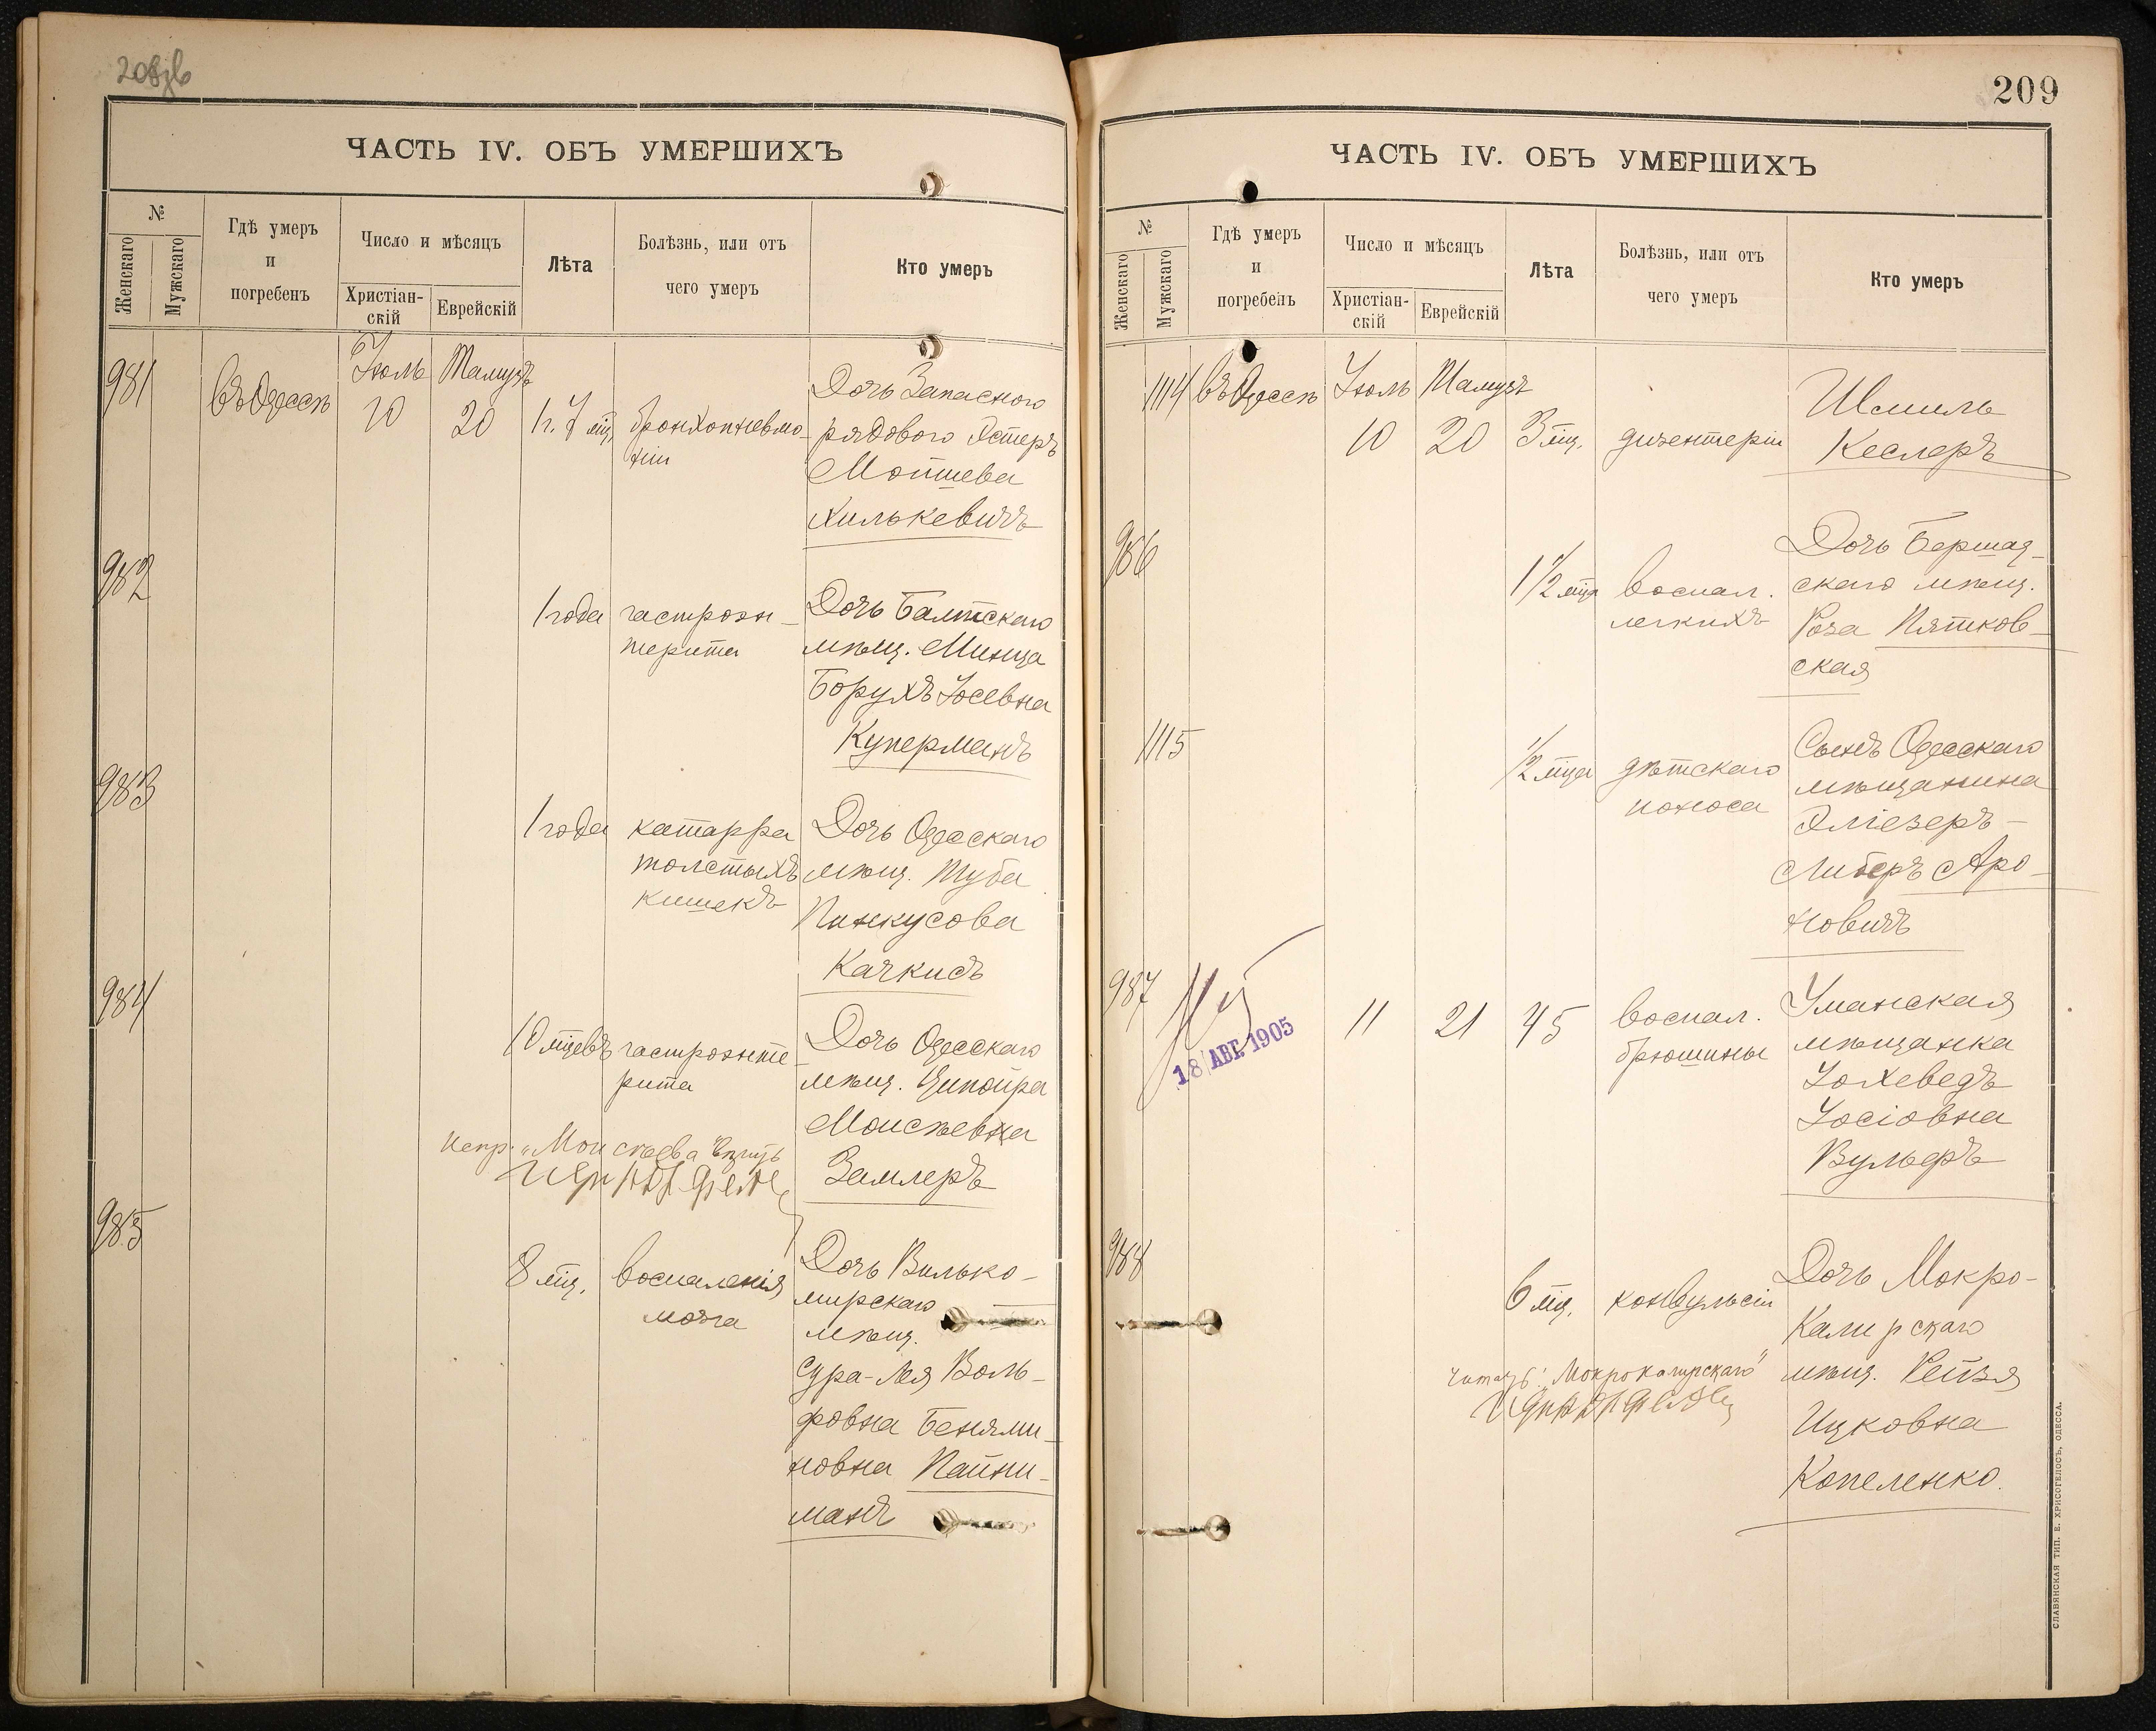 208
ЧАСТЬ IV. ОБЪ УМЕРШИХЪ
№
Женскаго
Мужскаго
Гдѣ умеръ
и
погребенъ
Число и мѣсяцъ
Христіан-
скій
Еврейскій
Лѣта
Болѣзнь, или отъ
чего умеръ
Кто умеръ
981
Въ Одессѣ
Іюль Тамузъ
10 20 1 г. 7 мц. бронхопневмо-
ніи
Дочь Запасного
рядового Эстеръ
Мотшева
Хилькевичъ
982
1 года гастроэн-
терита
Дочь Балтскаго
мѣщ. Минца
Борухъ Іосевна
Куперманъ
983
1 года катарра
толстыхъ
кишекъ
Дочь Одесскаго
мѣщ. Туба
Пинкусова
Качкисъ
984
10 мцевъ гастроэнте-
рита
Дочь Одесскаго
мѣщ. Ципойра
Моисѣевна
Землеръ
испр. „Моисѣева"
985
8 мц. воспаленія
мозга
Дочь Вилько-
мирскаго
мѣщ.
Сура-Лея Воль-
фовна Бенями-
новна Пайни-
манъ
209
ЧАСТЬ IV. ОБЪ УМЕРШИХЪ
№
Женскаго
Мужскаго
Гдѣ умеръ
и
погребенъ
Число и мѣсяцъ
Христіан-
скій
Еврейскій
Лѣта
Болѣзнь, или отъ
чего умеръ
Кто умеръ
1114 Въ Одессѣ Іюль Тамузъ
10 20 3 мц. дизентеріи
Шмиль
Кеслеръ
986
1 1/2 мца воспал.
легкихъ
Дочь Бершад-
скаго мѣщ.
Роза Пятков-
ская
1115
1/2 мца дѣтскаго
поноса
Сынъ Одесскаго
мѣщанина
Эліезеръ-
Либеръ Аро-
новичъ
987
18 АВГ. 1905
11 21 45 воспал.
брюшины
Уманская
мѣщанка
Іохеведъ
Іосіовна
Вульфъ
988
6 мц. конвульсіи
Дочь Мокро-
Калирскаго
мѣщ. Рейзя
Ицковна
Копеленко.
читать: „Мокрокалирскаго"
СЛАВЯНСКАЯ ТИП. Е. ХРИСОГЕЛОСЪ, ОДЕССА.